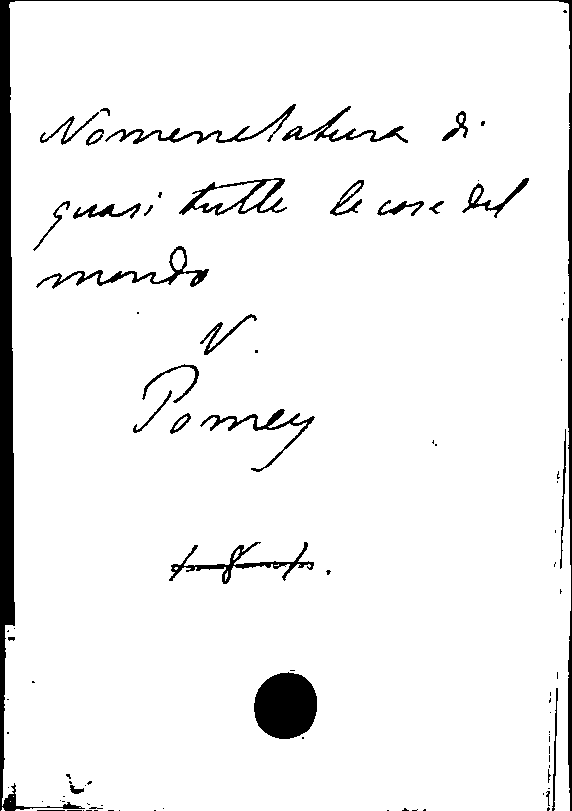 Nomenclatura di
quasi tutte le cose del
mondo
V.
Pomey